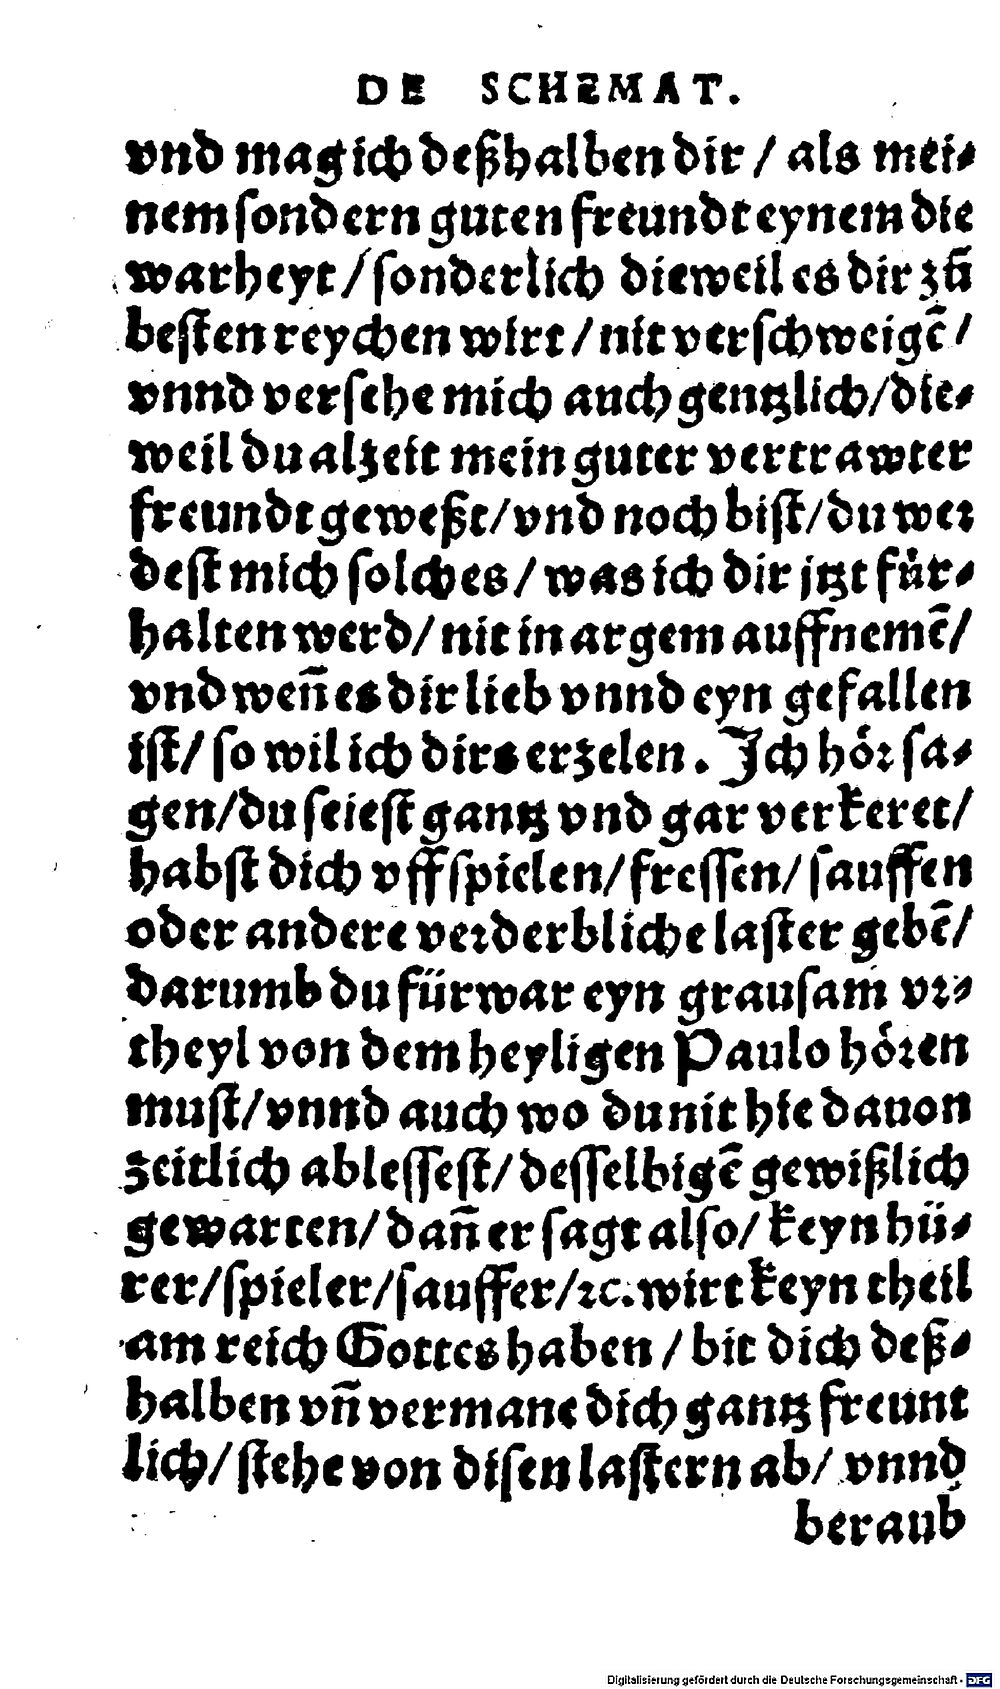 DE SCHEMAT.
vnd mag ich deßhalben dir / als mei⸗
nem sondern guten freundt eynem die
warheyt / sonderlich dieweil es dir zů
besten reychen wirt / nit verschweigẽ /
vnnd versehe mich auch gentzlich / die⸗
weil du alzeit mein guter vertrawter
freundt geweßt / vnd noch bist / du wer
dest mich solches / was ich dir jtzt für⸗
halten werd / nit in argem auffnemẽ /
vnd weñ es dir lieb vnnd eyn gefallen
ist / so wil ich dirs erzelen. Ich hör sa⸗
gen / du seiest gantz vnd gar verkeret /
habst dich vff spielen / fressen / sauffen
oder andere verderbliche laster gebẽ /
darumb du fürwar eyn grausam vr⸗
theyl von dem heyligen Paulo hören
must / vnnd auch wo du nit hie dauon
zeitlich ablessest / desselbigẽ gewißlich
gewarten / dañ er sagt also / keyn hü⸗
rer / spieler / sauffer / ꝛc. wirt keyn theil
am reich Gottes haben / bit dich deß⸗
halben vñ vermane dich gantz freunt
lich / stehe von disen lastern ab / vnnd
beraub
Digitalisierung gefördert durch die Deutsche Forschungsgemeinschaft - DFG